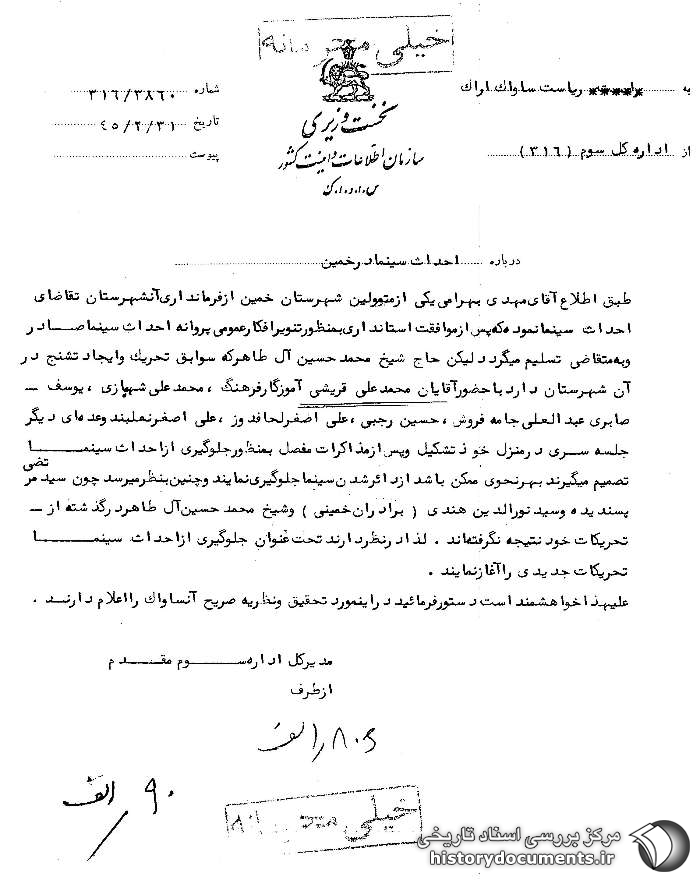 خیلی محرمانه
به ریاست ساواک اراک
شماره ۳۱۶/۳۸۶۰
نخست وزیری
تاریخ ۴۵/۲/۳۱
از اداره کل سوم (۳۱۶)
سازمان اطلاعات و امنیت کشور
پیوست
س.ا.و.ا.ک
درباره احداث سینما در خمین
طبق اطلاع آقای مهدی بهرامی یکی از متولین شهرستان خمین از فرمانداری آنشهرستان تقاضای
احداث سینما نموده که پس از موافقت استانداری بمنظور تنویر افکار عمومی پروانه احداث سینما صادر
و به متقاضی تسلیم میگردد لیکن حاج شیخ محمد حسین آل طاهر که سوابق تحریک و ایجاد تشنج در
آن شهرستان دارد با حضور آقایان محمد علی قریشی آموزگار فرهنگ ، محمد علی شهبازی ، یوسف –
صابری عبد العلی جامه فروش ، حسین رجبی ، علی اصغر لحافدوز ، علی اصغر نعلبند و عده ای دیگر
جلسه سری در منزل خود تشکیل و پس از مذاکرات مفصل بمنظور جلوگیری از احداث سینما
تصمیم میگیرند بهر نحوی ممکن باشد از دائر شدن سینما جلوگیری نمایند و چنین بنظر میرسد چون سید مرتضی
پسندیده و سید نورالدین هندی ( برادران خمینی ) و شیخ محمد حسین آل طاهر در گذشته از –
تحریکات خود نتیجه نگرفته اند . لذا در نظر دارند تحت عنوان جلوگیری از احداث سینما
تحریکات جدیدی را آغاز نمایند .
علیهذا خواهشمند است دستور فرمائید در اینمورد تحقیق و نظریه صریح آنساواک را اعلام دارند .
مدیر کل اداره سوم مقدم
از طرف
الف
۹۰ الف
خیلی محرمانه
مرکز بررسی اسناد تاریخی
historydocuments.ir